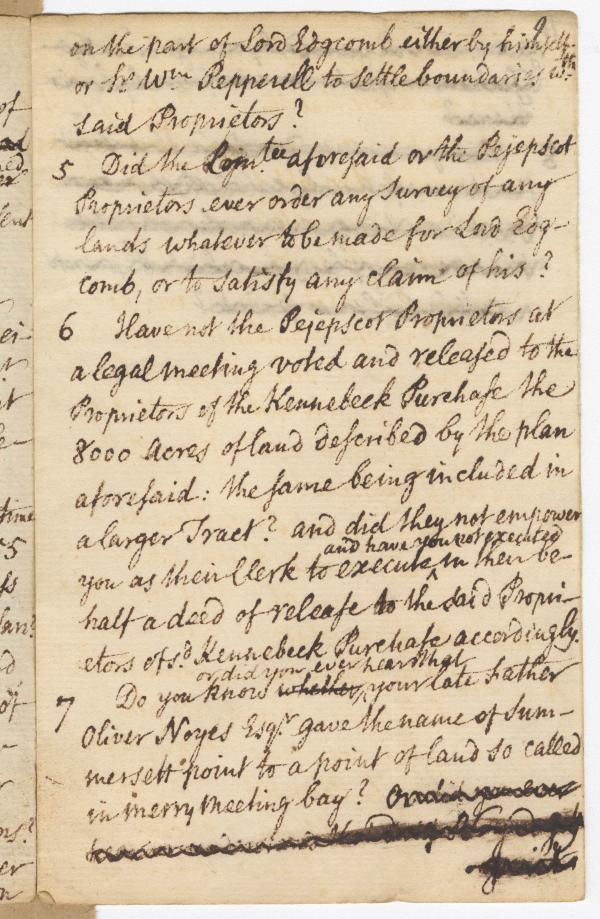 on the part of Lord Edgcomb either by himself
or Sr. Wm Pepperell to settle boundaries wth
said Proprietors?
5 Did the Comtee aforesaid or the Pejepscot
Proprietors ever order any Survey of any
lands whatever to be made for Lord Edg-
comb, or to satisfy any claim of his?
6 Have not the Pejepscot Proprietors at
a legal meeting voted and released to the
Proprietors of the Kennebeck Purchase the
8000 Acres of land described by the plan
aforesaid: the same being included in
a larger Tract? and did they not empower
and have you not executed
you as their Clerk to execute ^ in their be-
half a deed of release to the said Propri-
etors of sd. Kennebeck Purchase accordingly.
or did you ever hear that
7 Do you know whether ^ your late Father
Oliver Noyes Esqr. gave the name of Sum-
mersett point to a point of land so called
in merry meeting bay? Or did you ever